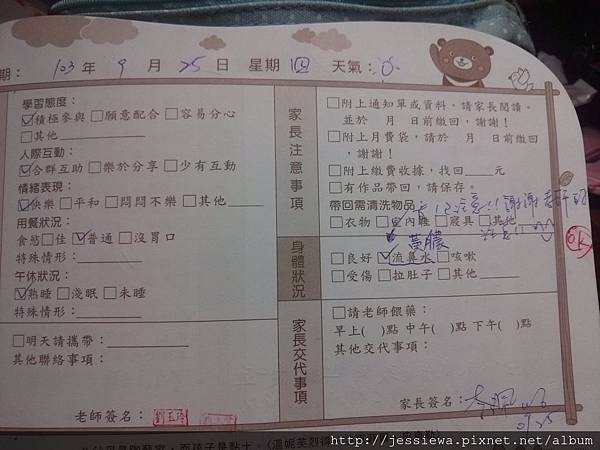 期：103 年 9 月 25 日 星期 四 天氣：
學習態度：
☑積極參與□願意配合□容易分心
□其他
人際互動：
☑合群互助□樂於分享□少有互動
情緒表現：
☑快樂□平和□悶悶不樂□其他
用餐狀況：
食慾□佳☑普通□沒胃口
特殊情形：
午休狀況：
☑熟睡□淺眠□未睡
特殊情形：
□明天請攜帶：
其他聯絡事項：
老師簽名：
家長注意事項
□附上通知單或資料，請家長閱讀。
並於　月　日前繳回，謝謝！
□附上月費袋，請於　月　日前繳回
，謝謝！
□附上繳費收據，找回＿＿元
□有作品帶回，請保存。
帶回需清洗物品
□衣物□室內鞋□寢具□其他
身體狀況
黃膿
□良好☑流鼻水□咳嗽
□受傷□拉肚子□其他
家長交代事項
□請老師餵藥：
早上(　)點 中午(　)點 下午(　)點
其他交代事項：
家長簽名：
http://jessiewa.pixnet.net/album